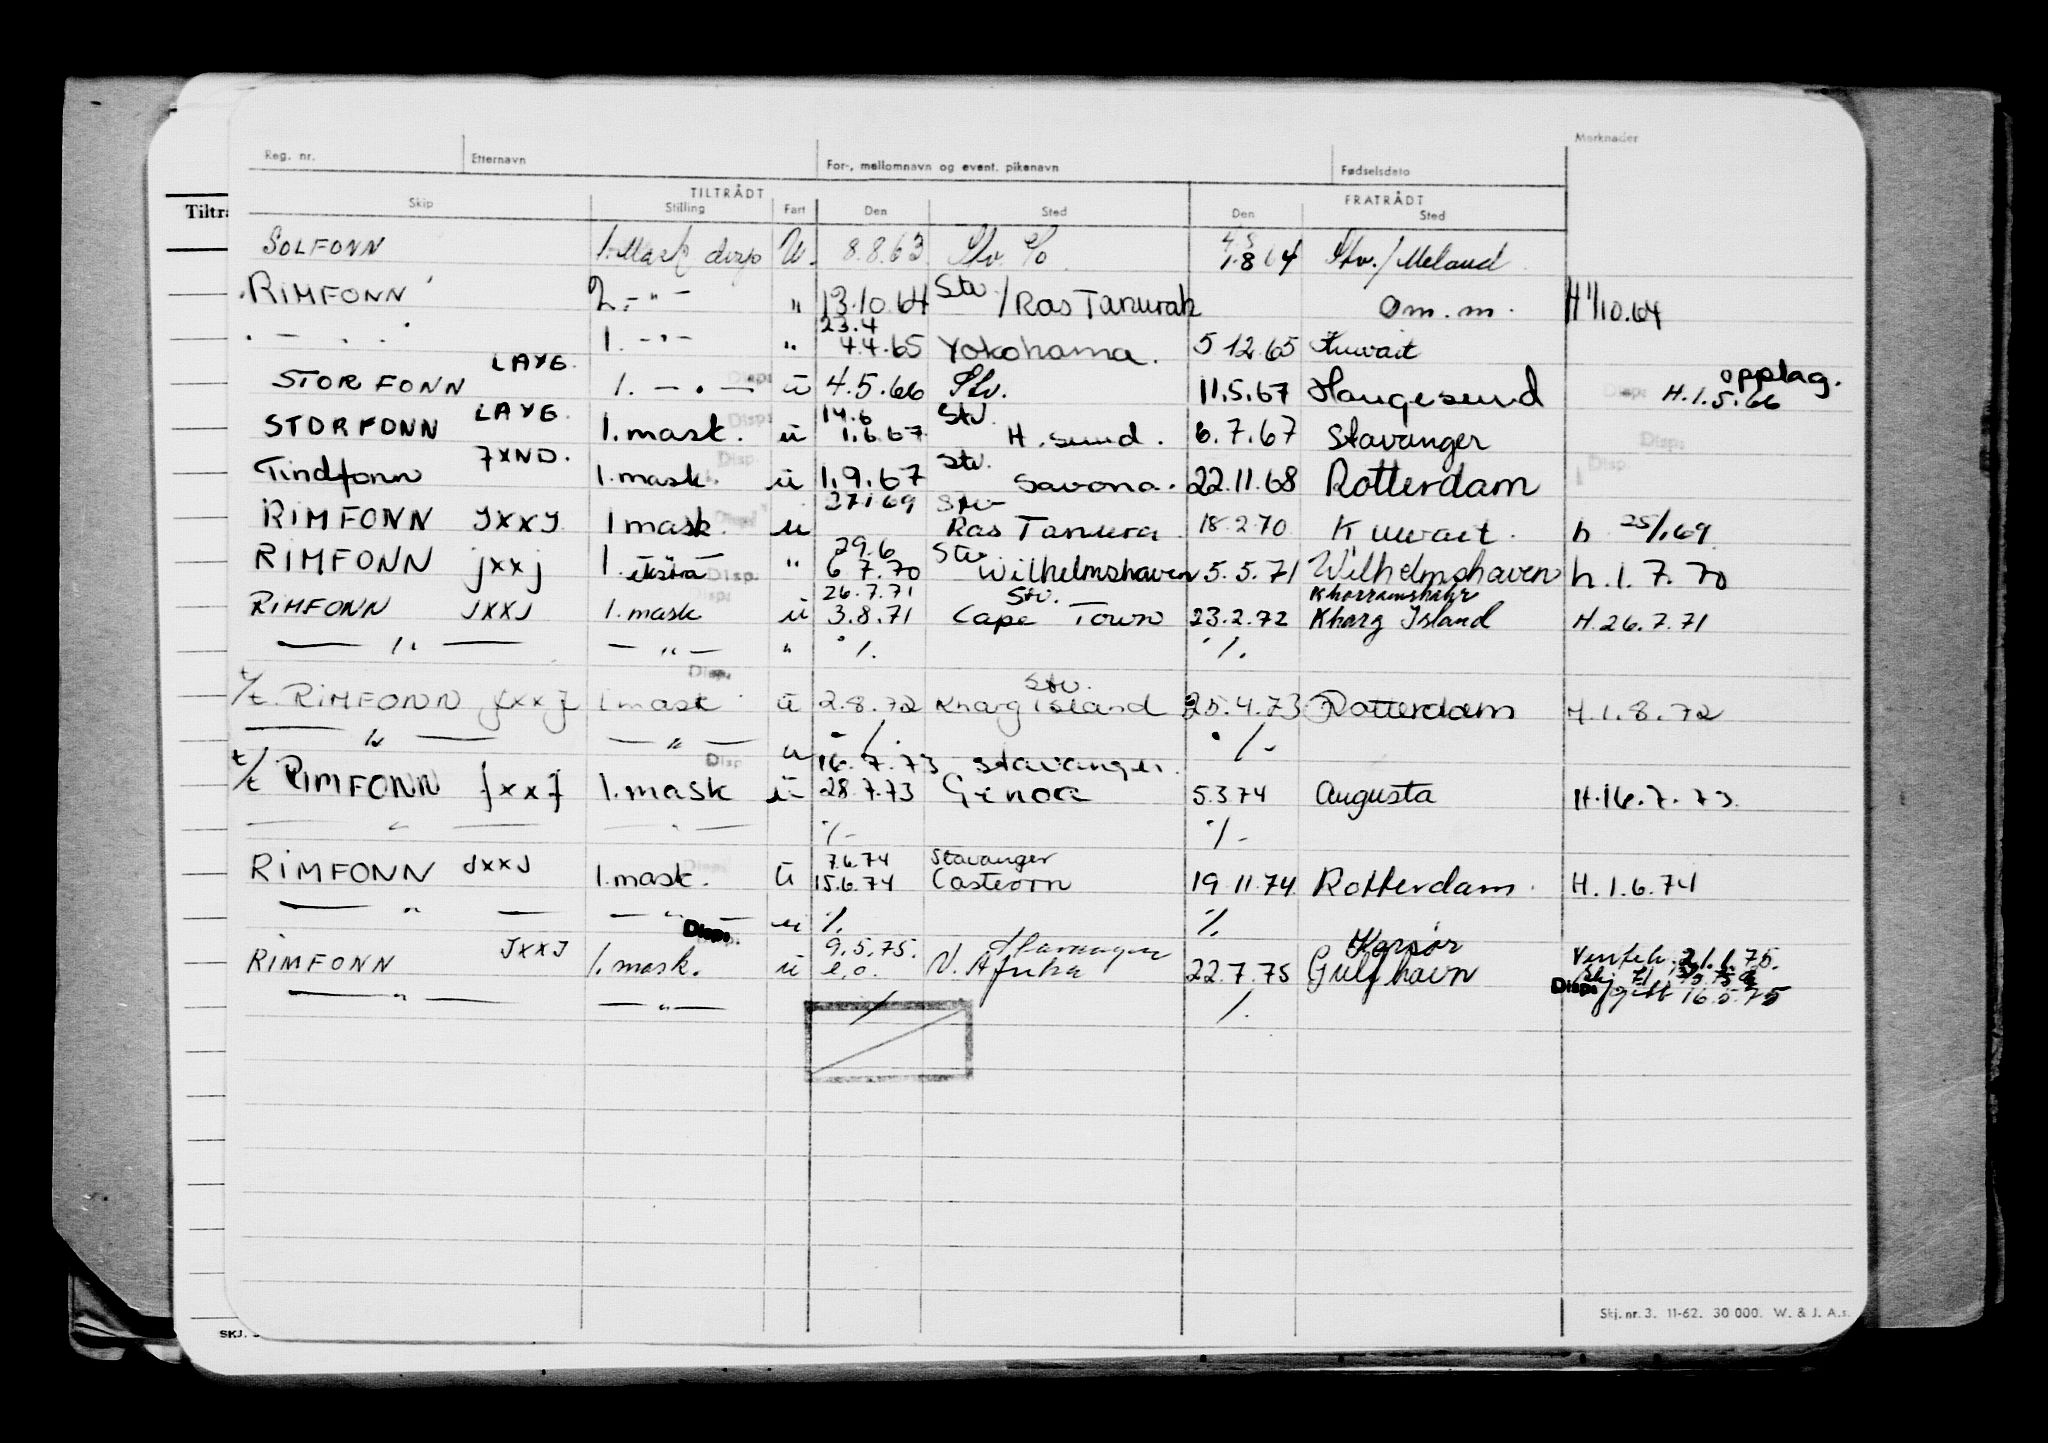 Merknader
Reg. nr. Etternavn For-, mellomnavn og event. pikenavn Fødselsdato
TILTRÅDT FRATRÅDT
Tiltr
Skip Stilling Fart Den Sted Den Sted
SOLFONN 1. Mask disp U. 8.8.63 Stv. Stv./Meland
RIMFONN 2. -"- " 13.10.64 Stv/Ras Tanurah Om. m. H 1/10.64
23.4
- " - 1. -"- " 4.4.65 Yokohama. 5 12.65 Kuwait
LAYG. opplag.
STORFONN 1. - " - Disp: u 4.5.66 Stv. 11.5.67 Haugesund Disp: H.1.5.66
LAYG. Disp: 14.6 Stv.
STORFONN 1. mask. u 1.6.67 H. sund. 6.7.67 Stavanger Disp:
JXND. Disp. Stv. Disp.
Tindfonn 1. mask. u 1.9.67 Savona. 22.11.68 Rotterdam
27.1.69 Stv
RIMFONN JXXJ 1 mask. u Ras Tanura 18.2.70 Kuwait. h 25/1.69
29.6 Stv
RIMFONN jxxj 1. ekstra Disp. " 6 7.70 Wilhelmshaven 5.5.71 Wilhelmshaven h.1.7.70
Disp: 26.7.71 Stv. Khorramshahr
RIMFONN JXXJ 1. mask u 3.8.71 Cape Town 23.2.72 Kharg Island H.26.7.71
— " — — " — " ·/. ·/.
Disp. Stv.
t/t. RIMFONN JXXJ 1. mask u 2.8.72 Kharg Island 25.4.73 Rotterdam H.1.8.72
— " — — " — u ·/. ·/-
Disp 16.7.73 Stavanger.
t/t RIMFONN JXXJ 1. mask u 28.7.73 Genoa 5.3.74 Augusta H.16.7.73
— " — — " — ·/- ·/-
7.6.74 Stavanger
RIMFONN JXXJ 1. mask. u 15.6.74 19 11.74 Rotterdam. H.1.6.74
— " — — " — u ·/. ·/.
Disp: 9.5.75. Stavanger Korsør
RIMFONN JXXJ 1. mask. u e.o. V. Afrika 22.7.75 Gulfhavn
Disp: 16.5.75
— " — — " — ·/. ·/.
Skj. nr. 3. 11-62. 30 000. W. & J. A.s.
SKJ.